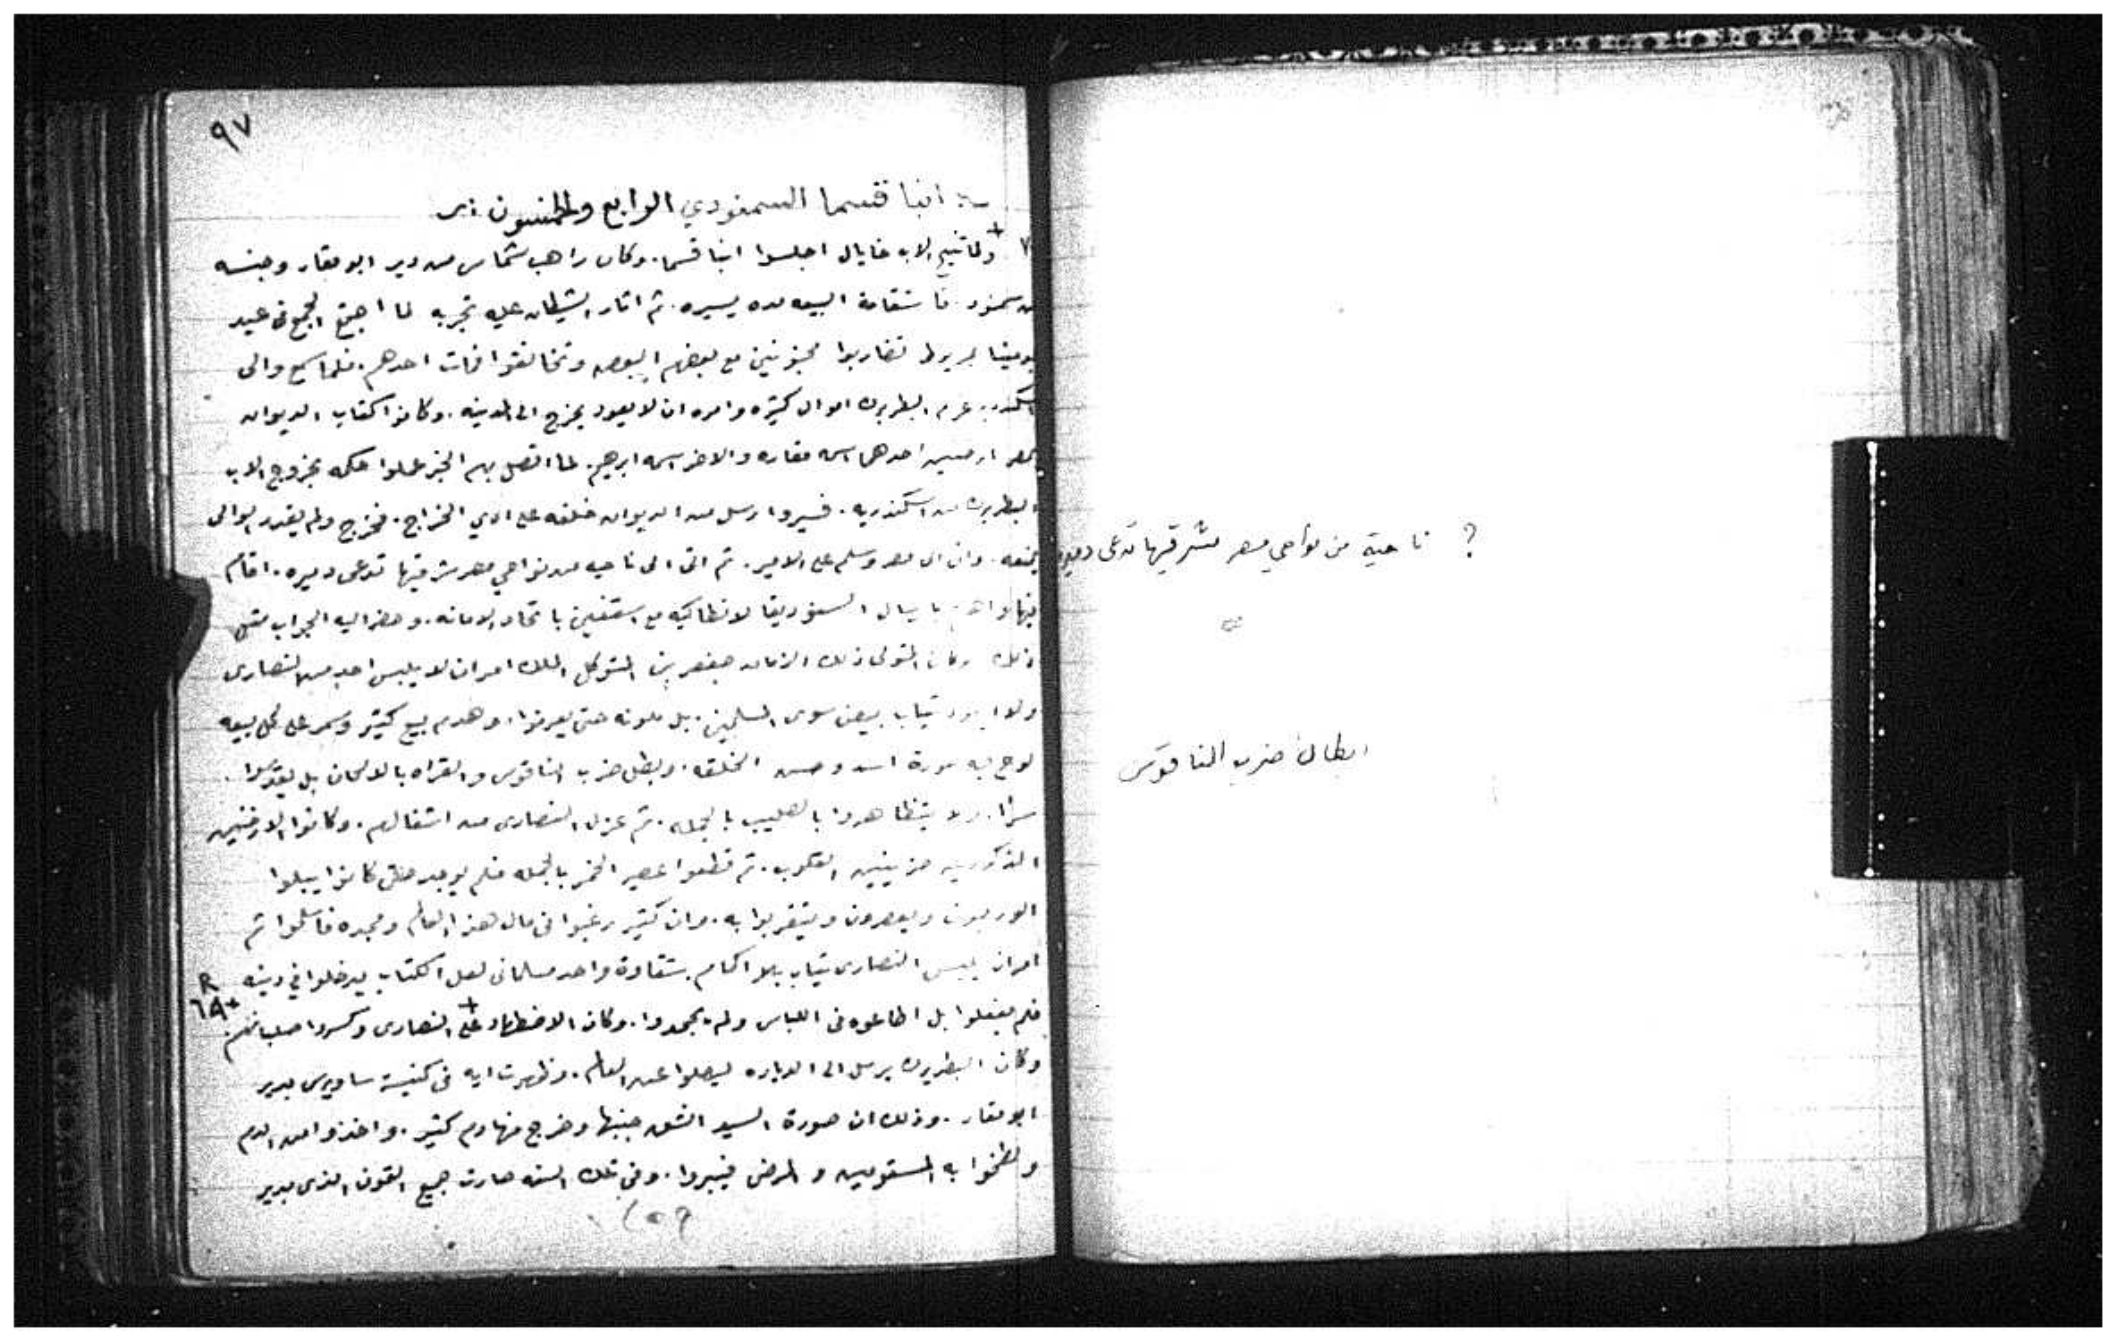 ٩٧
انبا قسما السمنودي الرابع والخمسون
ولما تنيح الاب خايال اجلسوا انبا قسما. وكان راهب شماس من دير ابو مقار وجنسه
من سمنود فاستقامة البيعه مده يسيره. ثم اثار الشيطان عليه تجربه لما اجتمع الجمع في عيد
بومينا بمريوط تضاربوا مجنونين مع بعضهم البعض وتخانقوا فمات احدهم. فلما سمع والى
اسكندريه غرم البطريرك اموال كثيره وامره ان لا يعود يخرج الى المدينه. وكانوا كتاب الديوان
بمصر ارخنين احدهما اسمه مقاره والاخر اسمه ابرهيم. لما اتصل بهم الخبر عملوا حكمه بخروج الاب
البطريرك من اسكندريه. فسيروا رسل من الديوان خلفه على ادي الخراج. فخرج ولم يقدر الوالى
يمنعه. واتى الى مصر وسلم على الامير. ثم اتى الى ناحيه من نواحي مصر شرقيها تدعى دميره. اقام
فيها سنوديقا لانطاكيه مع اسقفين باتحاد الامانه. وحضر اليه الجواب مثل
ذلك وكان المتولى ذلك الزمان جعفر بن المتوكل الملك امر ان لا يلبس احد من النصارى
ولا اليهود ثياب بيض سوى المسلمين. بل ملونه حتى يعرفوا. وهدم بيع كثير وسمر على كل بيعه
لوح فيه صورة اسد وحش الخلقه. وبطل ضرب الناقوس والقراه بالالحان بل يقدسوا
سرًا. ولا يتظاهروا بالصليب بالجمله. ثم عزل النصارى من اشغالهم. وكانوا الارخنين
المذكورين حزينين القلوب. ثم قطعوا عصير الخمر بالجمله فلم يوجد حتى كانوا يبلوا
ويعصرون ويتقربوا به. وان كثير رغبوا في مال هذا العالم ومجده فاسلموا ثم
امر ان يلبس النصارى ثياب بلا اكمام واحد مسلمانى لعل الكتاب يدخلوا في دينه R
فلم يفعلوا بل اطاعوه في اللباس ولم يجحدوا. وكان الاضطهاد على النصارى وكسروا صلبانهم
وكان البطريرك يرسل الى الدياره ليصلوا عن العالم. وظهرت ايه في كنيسة ساويرس بدير
ابو مقار. وذلك ان صورة السيد انشق جنبها وخرج منها دم كثير. واخذوا من الدم
ولطخوا به المسقومين والمرضى فيبروا. وفي تلك السنه صارت جميع القون الذى بدير
? ناحية من نواحي مصر مشرقيها تدعى دميره
ابطال ضرب الناقوس